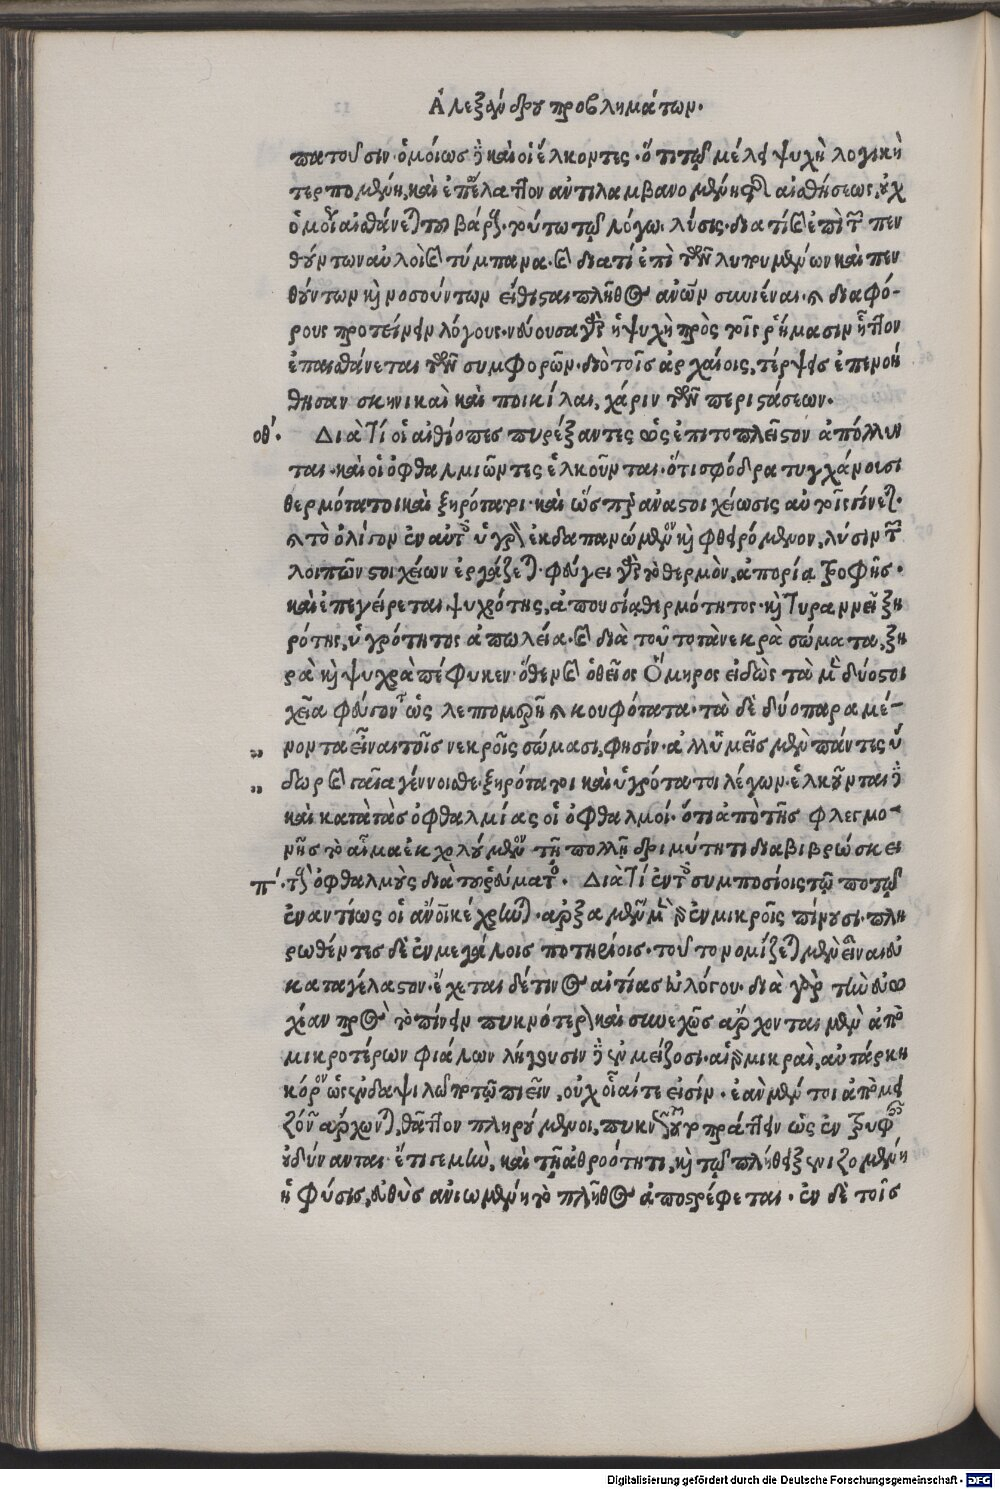 Ἀλεξάνδρου προβλημάτων.
πατοῦσιν. ὁμοίως καὶ οἱ ἕλκοντες. ὅτι τῷ μέλει ψυχὴ λογικὴ
τερπομένη, καὶ ἐπ' ἔλαττον ἀντιλαμβανομένης αἰσθήσεως, οὐχ
ὁμοίως αἰσθάνεται τοῦ βάρους. τούτῳ τῷ λόγῳ. λύσις. διατί καὶ ἐπὶ τῶν πεν
θούντων αὐλοὶ καὶ τύμπανα. καὶ διατί ἐπὶ τῶν λυπουμένων καὶ πεν
θούντων καὶ νοσούντων εἴθισται πλῆθος ἀνθρώπων συνιέναι. καὶ διαφό-
ρους προτείνειν λόγους. νεύουσα γὰρ ἡ ψυχὴ πρὸς τοῖς ῥήμασιν ἧττον
ἐπαισθάνεται τῶν συμφορῶν. διὸ τοῖς ἀρχαίοις, τέρψεις ἐπενοή
θησαν σκηνικαὶ καὶ ποικίλαι, χάριν τῶν περιστάσεων.
οθ΄. Διὰ τί οἱ αἰθίοπες πυρέξαντες ὡς ἐπιτοπλεῖστον ἀπόλλυν
ται. καὶ οἱ ὀφθαλμιῶντες ἑλκοῦνται. ὅτι σφόδρα τυγχάνουσι
θερμότατοι καὶ ξηρότατοι. καὶ ὥσπερ ἀναστοιχείωσις αὐτοῖς γίνεται.
καὶ τὸ ὀλίγον ἐν αὐτοῖς ὑγρὸν ἐκδαπανώμενον καὶ φθειρόμενον, λύσιν τῶν
λοιπῶν στοιχείων ἐργάζεται. φεύγει γὰρ τὸ θερμὸν, ἀπορίᾳ τροφῆς.
καὶ ἐπεγείρεται ψυχρότης, ἀπουσίᾳ θερμότητος. καὶ τυραννεῖ ξη
ρότης, ὑγρότητος ἀπωλείᾳ. καὶ διὰ τοῦτο τὰ νεκρὰ σώματα, ξη
ρὰ καὶ ψυχρὰ πέφυκεν. ὅθεν καὶ ὁ θεῖος Ὅμηρος εἰδὼς τὰ μὲν δύο στοι
χεῖα φεύγοντα ὡς λεπτομερῆ καὶ κουφότατα. τὰ δὲ δύο παραμέ-
νοντα εἶναι τοῖς νεκροῖς σώμασι, φησίν. ἀλλ' ὑμεῖς μὲν πάντες ὕ
δωρ καὶ γαῖα γένοισθε. ξηρότατοι καὶ ὑγρότατοι λέγων. ἑλκοῦνται
καὶ κατὰ τὰς ὀφθαλμίας οἱ ὀφθαλμοί. ὅτι ἀπὸ τῆς φλεγμο-
νῆς τὸ αἷμα ἐκχολούμενον τῇ πολλῇ δριμύτητι διαβιβρώσκει
π΄. τοὺς ὀφθαλμοὺς διὰ τοῦ ῥεύματος. Διὰ τί ἐν τοῖς συμποσίοις τῷ ποτῷ
ἐναντίως οἱ ἄνθρωποι κέχρηνται. ἀρξάμενοι μὲν γὰρ ἐν μικροῖς πίνουσι. πλη
ρωθέντες δὲ ἐν μεγάλοις ποτηρίοις. τοῦτο νομίζεται μὲν εἶναι εὐ
καταγέλαστον. ἔχεται δέ τινος αἰτίας εὐλόγου. διὰ γὰρ τὴν εὐω
χίαν πρὸς τὸ πίνειν πυκνότερον καὶ συνεχῶς ἄρχονται μὲν ἀπὸ
μικροτέρων φιάλων λήγουσιν ἐν μείζοσι. αἱ γὰρ μικραὶ, αὐτάρκη
κόρον ὡς ἐνδαψιλῶ τῷ πιεῖν, οὐχ οἷαίτε εἰσίν. ἐὰν μέντοι ἀπὸ μει
ζόνων ἄρχωνται, θᾶττον πληρούμενοι, πυκνῶς πράττειν ὡς ἐν τρυφαῖς
οὐ δύνανται. ἔτι γε μὴν, καὶ τῇ ἀθροότητι, καὶ τῷ πλήθει ξενιζομένη
ἡ φύσις, εὐθὺς ἀνιωμένη τὸ πλῆθος ἀποστρέφεται. ἐν δὲ τοῖς
Digitalisierung gefördert durch die Deutsche Forschungsgemeinschaft - DFG